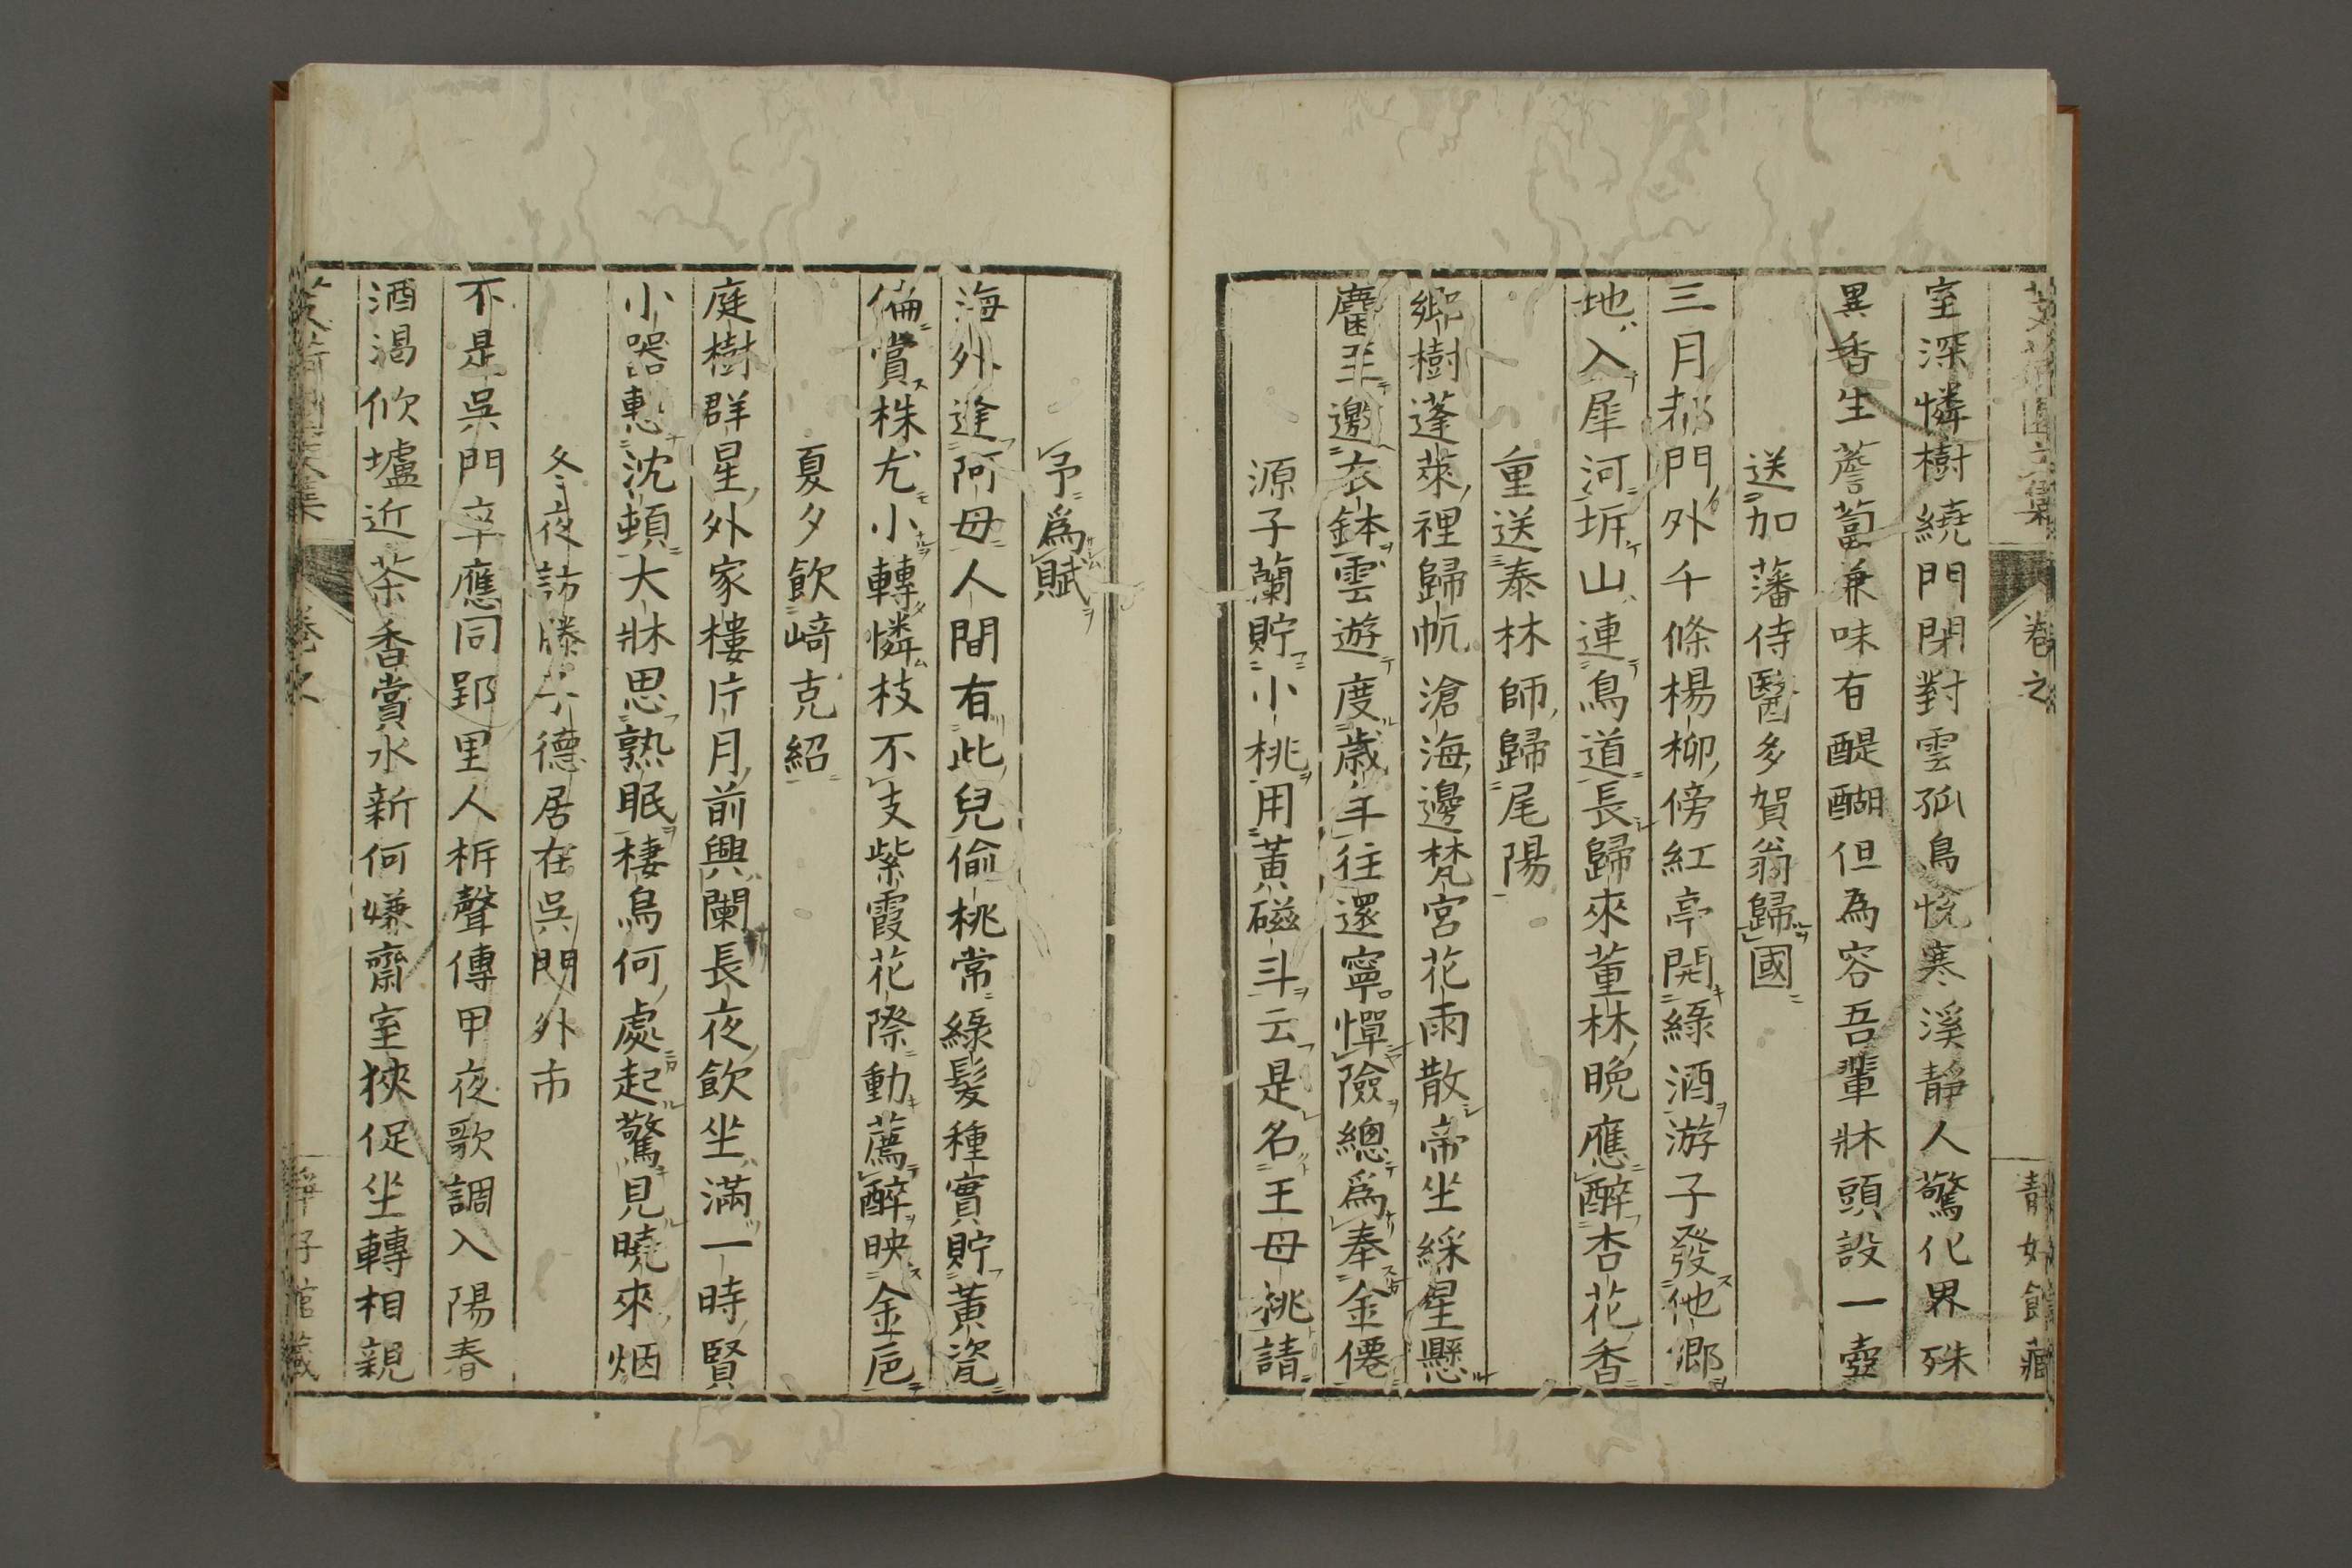 卷之
室深憐樹繞門閑對雲孤鳥悅寒溪靜人驚化界殊
異香生薝蔔兼味有醍醐但為容吾輩牀頭設一壺
送加藩侍醫多賀翁歸國
三月都門外千條楊柳傍紅亭開綠酒游子發他鄉
地入犀河坼山連鳥道長歸來董林晚應醉杏花香
重送泰林師歸尾陽
鄉樹蓬萊裡歸帆滄海邊梵宮花雨散帝坐綵星懸
麕至邀衣鉢雲遊度歲年往還寧憚險總爲奉金僊
源子蘭貯小桃用黃磁斗云是名王母桃請
予爲賦
海外逢阿母人間有此兒偷桃常綠髮種實貯黃瓷
偏賞株尤小轉憐枝不支紫霞花際動薦醉映金巵
夏夕飲﨑克紹
庭樹群星外家樓片月前興闌長夜飲坐滿一時賢
小器慙沈頓大牀思熟眠棲烏何處起驚見曉來烟
冬夜訪滕 德居在吳門外市
不是吳門卒應同郢里人柝聲傳甲夜歌調入陽春
酒渴欣壚近茶香賞水新何嫌齋室狹促坐轉相親